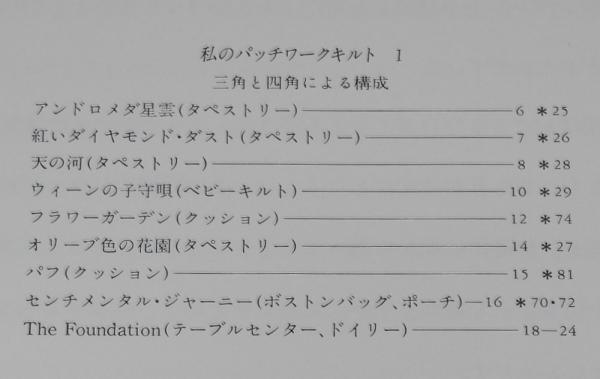 私のパッチワークキルト 1
三角と四角による構成
アンドロメダ星雲(タペストリー)―――6 *25
紅いダイヤモンド・ダスト(タペストリー)―――7 *26
天の河(タペストリー)―――8 *28
ウィーンの子守唄(ベビーキルト)―――10 *29
フラワーガーデン(クッション)―――12 *74
オリーブ色の花園(タペストリー)―――14 *27
パフ(クッション)―――15 *81
センチメンタル・ジャーニー(ボストンバッグ、ポーチ)―16 *70・72
The Foundation(テーブルセンター、ドイリー)―――18―24